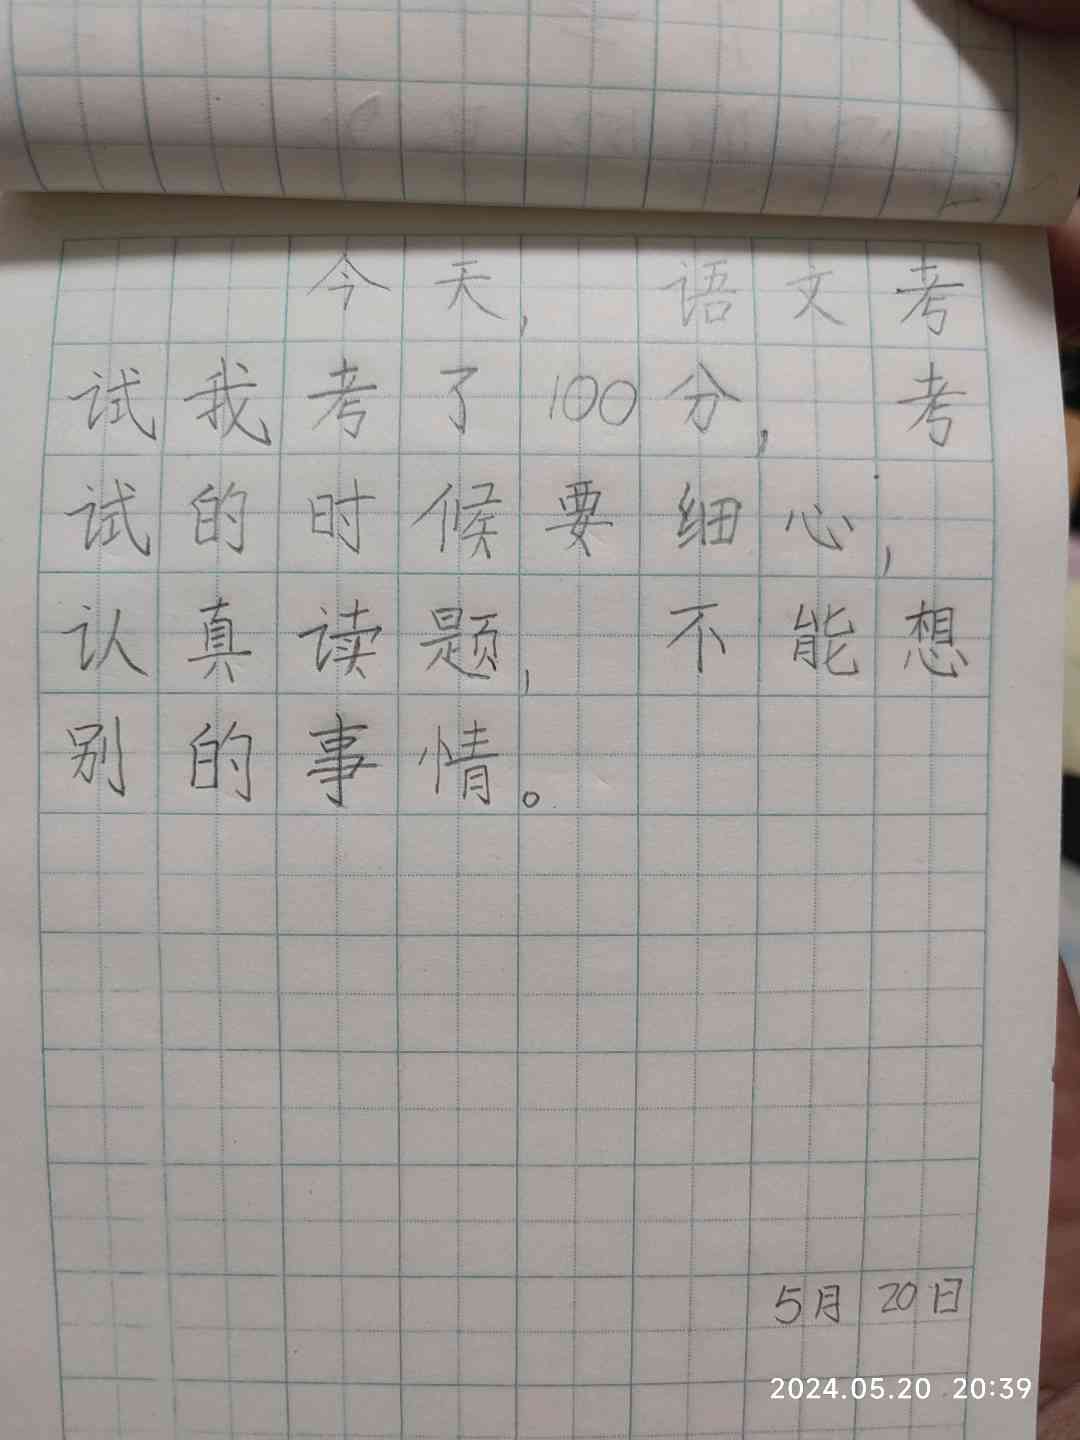 今天，语文考
试我考了100分，考
试的时候要细心，
认真读题，不能想
别的事情。
5月20日
2024.05.20 20:39